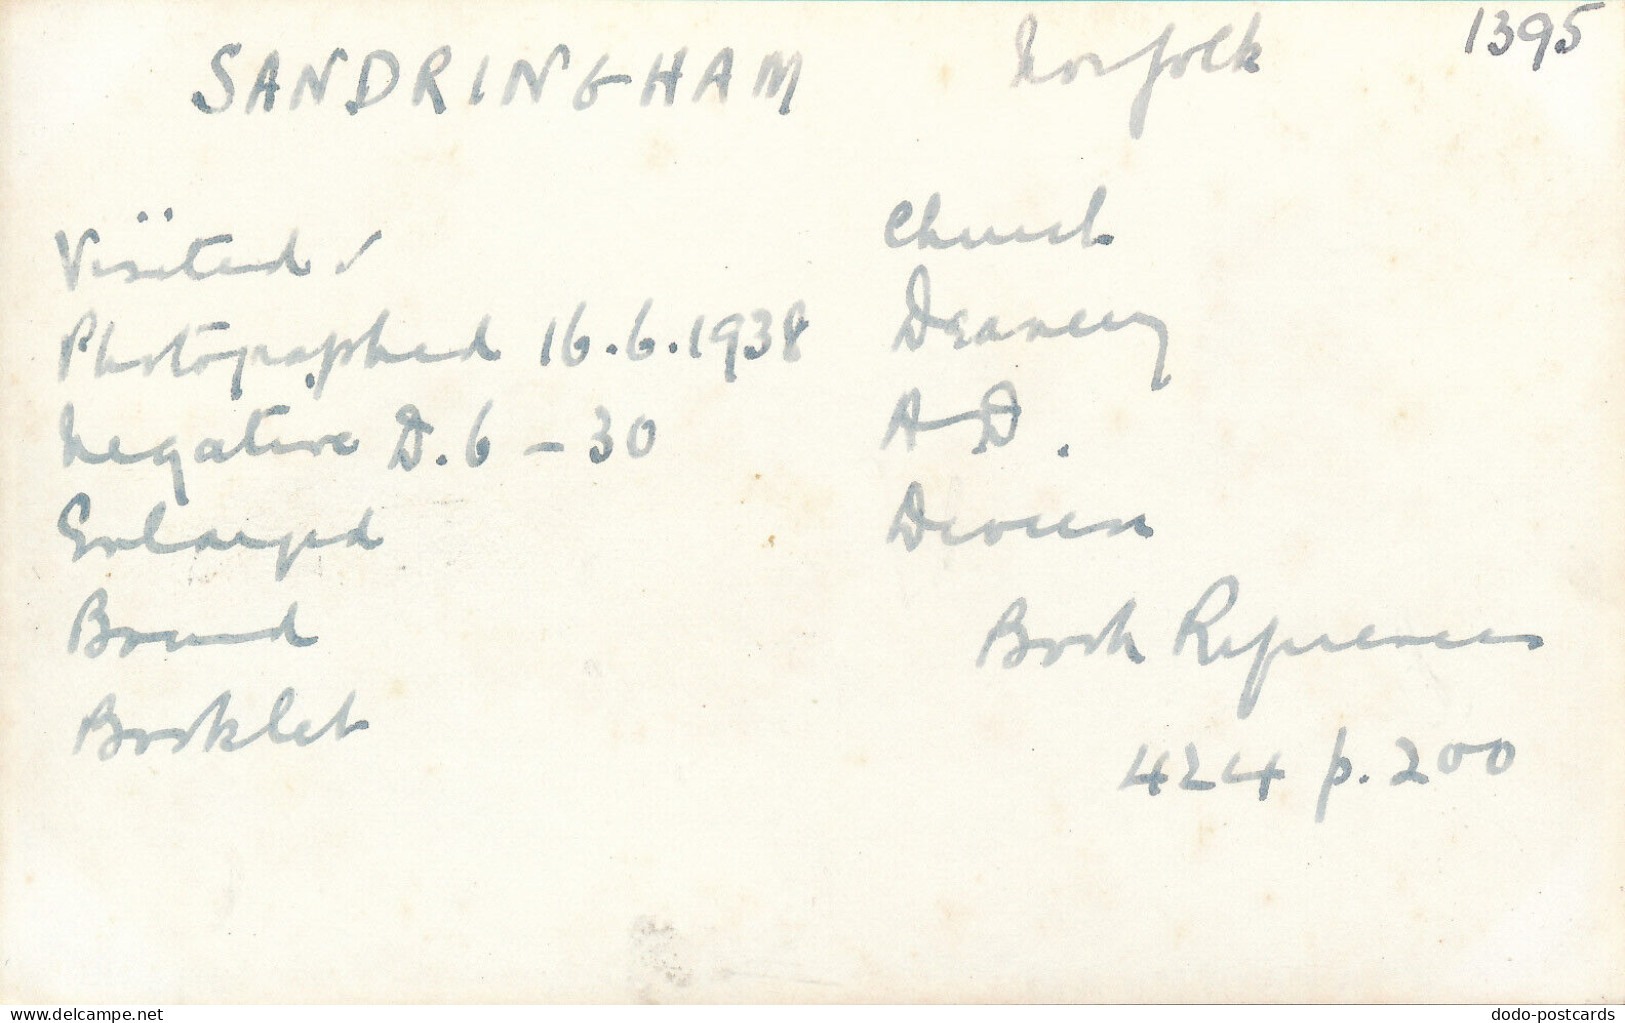 SANDRINGHAM Norfolk 1395
Visited ✓
Photographed 16.6.1938
Negative D.6 – 30
Enlarged
Bound
Booklet
Church
Deanery
A–D.
Diocese
Book References
424 p. 200
www.delcampe.net
dodo-postcards